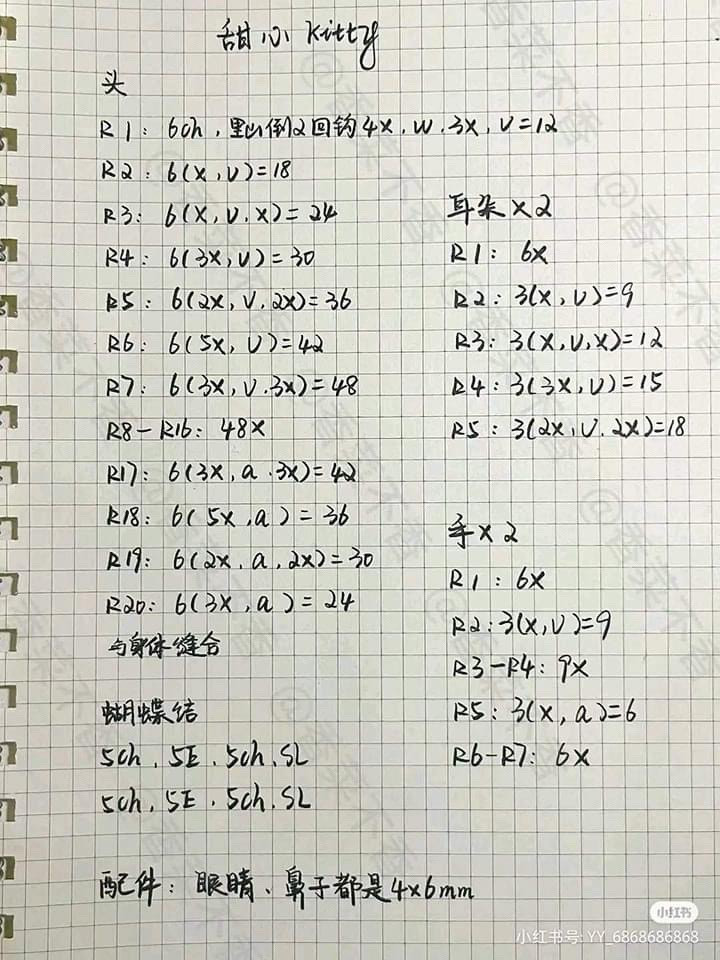 甜心 Kitty
头
R1: 6ch, 里山倒2回钩4X, W, 3X, V=12
R2: 6(X, V)=18
R3: 6(X, V, X)=24
R4: 6(3X, V)=30
R5: 6(2X, V, 2X)=36
R6: 6(5X, V)=42
R7: 6(3X, V, 3X)=48
R8-R16: 48X
R17: 6(3X, a, 3X)=42
R18: 6(5X, a)=36
R19: 6(2X, a, 2X)=30
R20: 6(3X, a)=24
与身体缝合
蝴蝶结
5ch, 5E, 5ch, SL
5ch, 5E, 5ch, SL
耳朵×2
R1: 6X
R2: 3(X, V)=9
R3: 3(X, V, X)=12
R4: 3(3X, V)=15
R5: 3(2X, V, 2X)=18
手×2
R1: 6X
R2: 3(X, V)=9
R3-R4: 9X
R5: 3(X, a)=6
R6-R7: 6X
配件: 眼睛、鼻子都是4×6mm
@香菜不香
小红书
小红书号: YY_6868686868